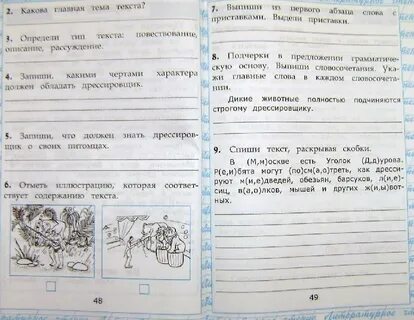 2. Какова главная тема текста?
3. Определи тип текста: повествование,
описание, рассуждение.
4. Запиши, какими чертами характера
должен обладать дрессировщик.
5. Запиши, что должен знать дрессиров-
щик о своих питомцах.
6. Отметь иллюстрацию, которая соответ-
ствует содержанию текста.
48
7. Выпиши из первого абзаца слова с
приставками. Выдели приставки.
8. Подчерки в предложении грамматиче-
скую основу. Выпиши словосочетания. Ука-
жи главные слова в каждом словосочета-
нии.
Дикие животные полностью подчиняются
строгому дрессировщику.
9. Спиши текст, раскрывая скобки.
В (М,м)оскве есть Уголок (Д,д)урова.
Р(е,и)бята могут (по)см(а,о)треть, как дресси-
руют м(и,е)дведей, обезьян, барсуков, л(и,е)-
сиц, в(а,о)лков, мышей и других ж(и,ы)вот-
ных.
49
Литературное